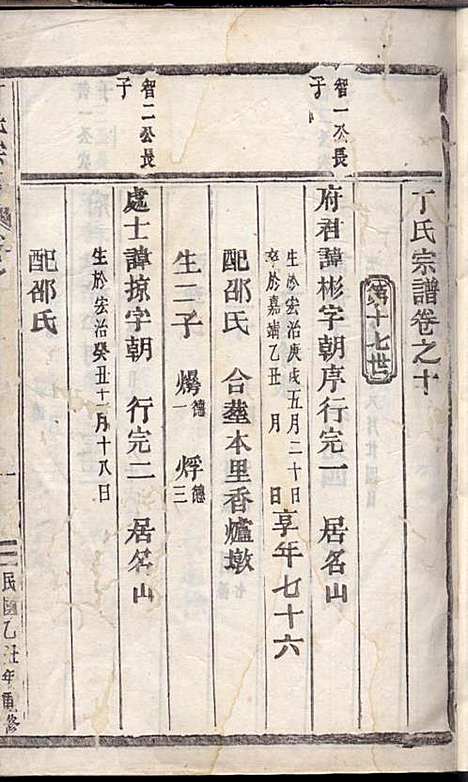 丁氏宗譜卷之十
第十七世
智一公長
子
府君諱彬字朝序行完一 居名山
生於宏治庚戌五月二十日
卒於嘉靖乙丑 月 日 享年七十六
配邵氏 合塟本里香爐墩
生二子 德一 烰德三
智二公長
子
處士諱掠字朝 行完二 居名山
生於宏治癸丑十一月十八日
配邵氏
民國乙丑年重修